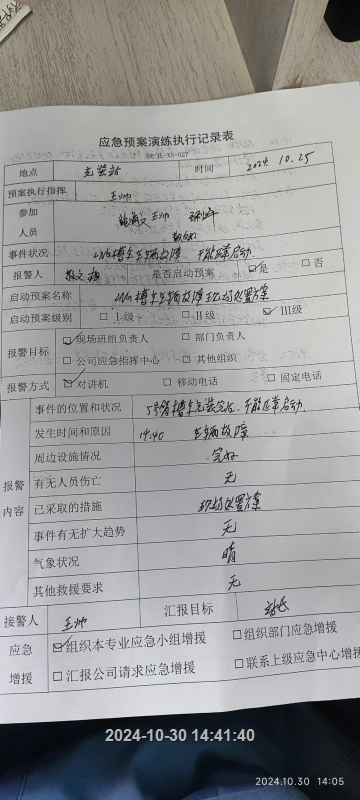 应急预案演练执行记录表
地点 充装站 时间 2024 10.25
预案执行指挥 王帅
参加人员 王帅
事件状况 LNG槽车车辆故障 不能正常启动
报警人 是否启动预案 ☑是 □否
启动预案名称 LNG槽车车辆故障现场处置方案
启动预案级别 □I级 □II级 ☑III级
报警目标 ☑现场班组负责人 □部门负责人
□公司应急指挥中心 □其他组织
报警方式 ☑对讲机 □移动电话 □固定电话
报警内容
事件的位置和状况 槽车充装完后,不能正常启动
发生时间和原因 14:40 车辆故障
周边设施情况 完好
有无人员伤亡 无
已采取的措施 现场处置方案
事件有无扩大趋势 无
气象状况 晴
其他救援要求 无
接警人 王帅 汇报目标 站长
应急增援 ☑组织本专业应急小组增援 □组织部门应急增援
□汇报公司请求应急增援 □联系上级应急中心增援
2024-10-30 14:41:40
2024.10.30 14:05